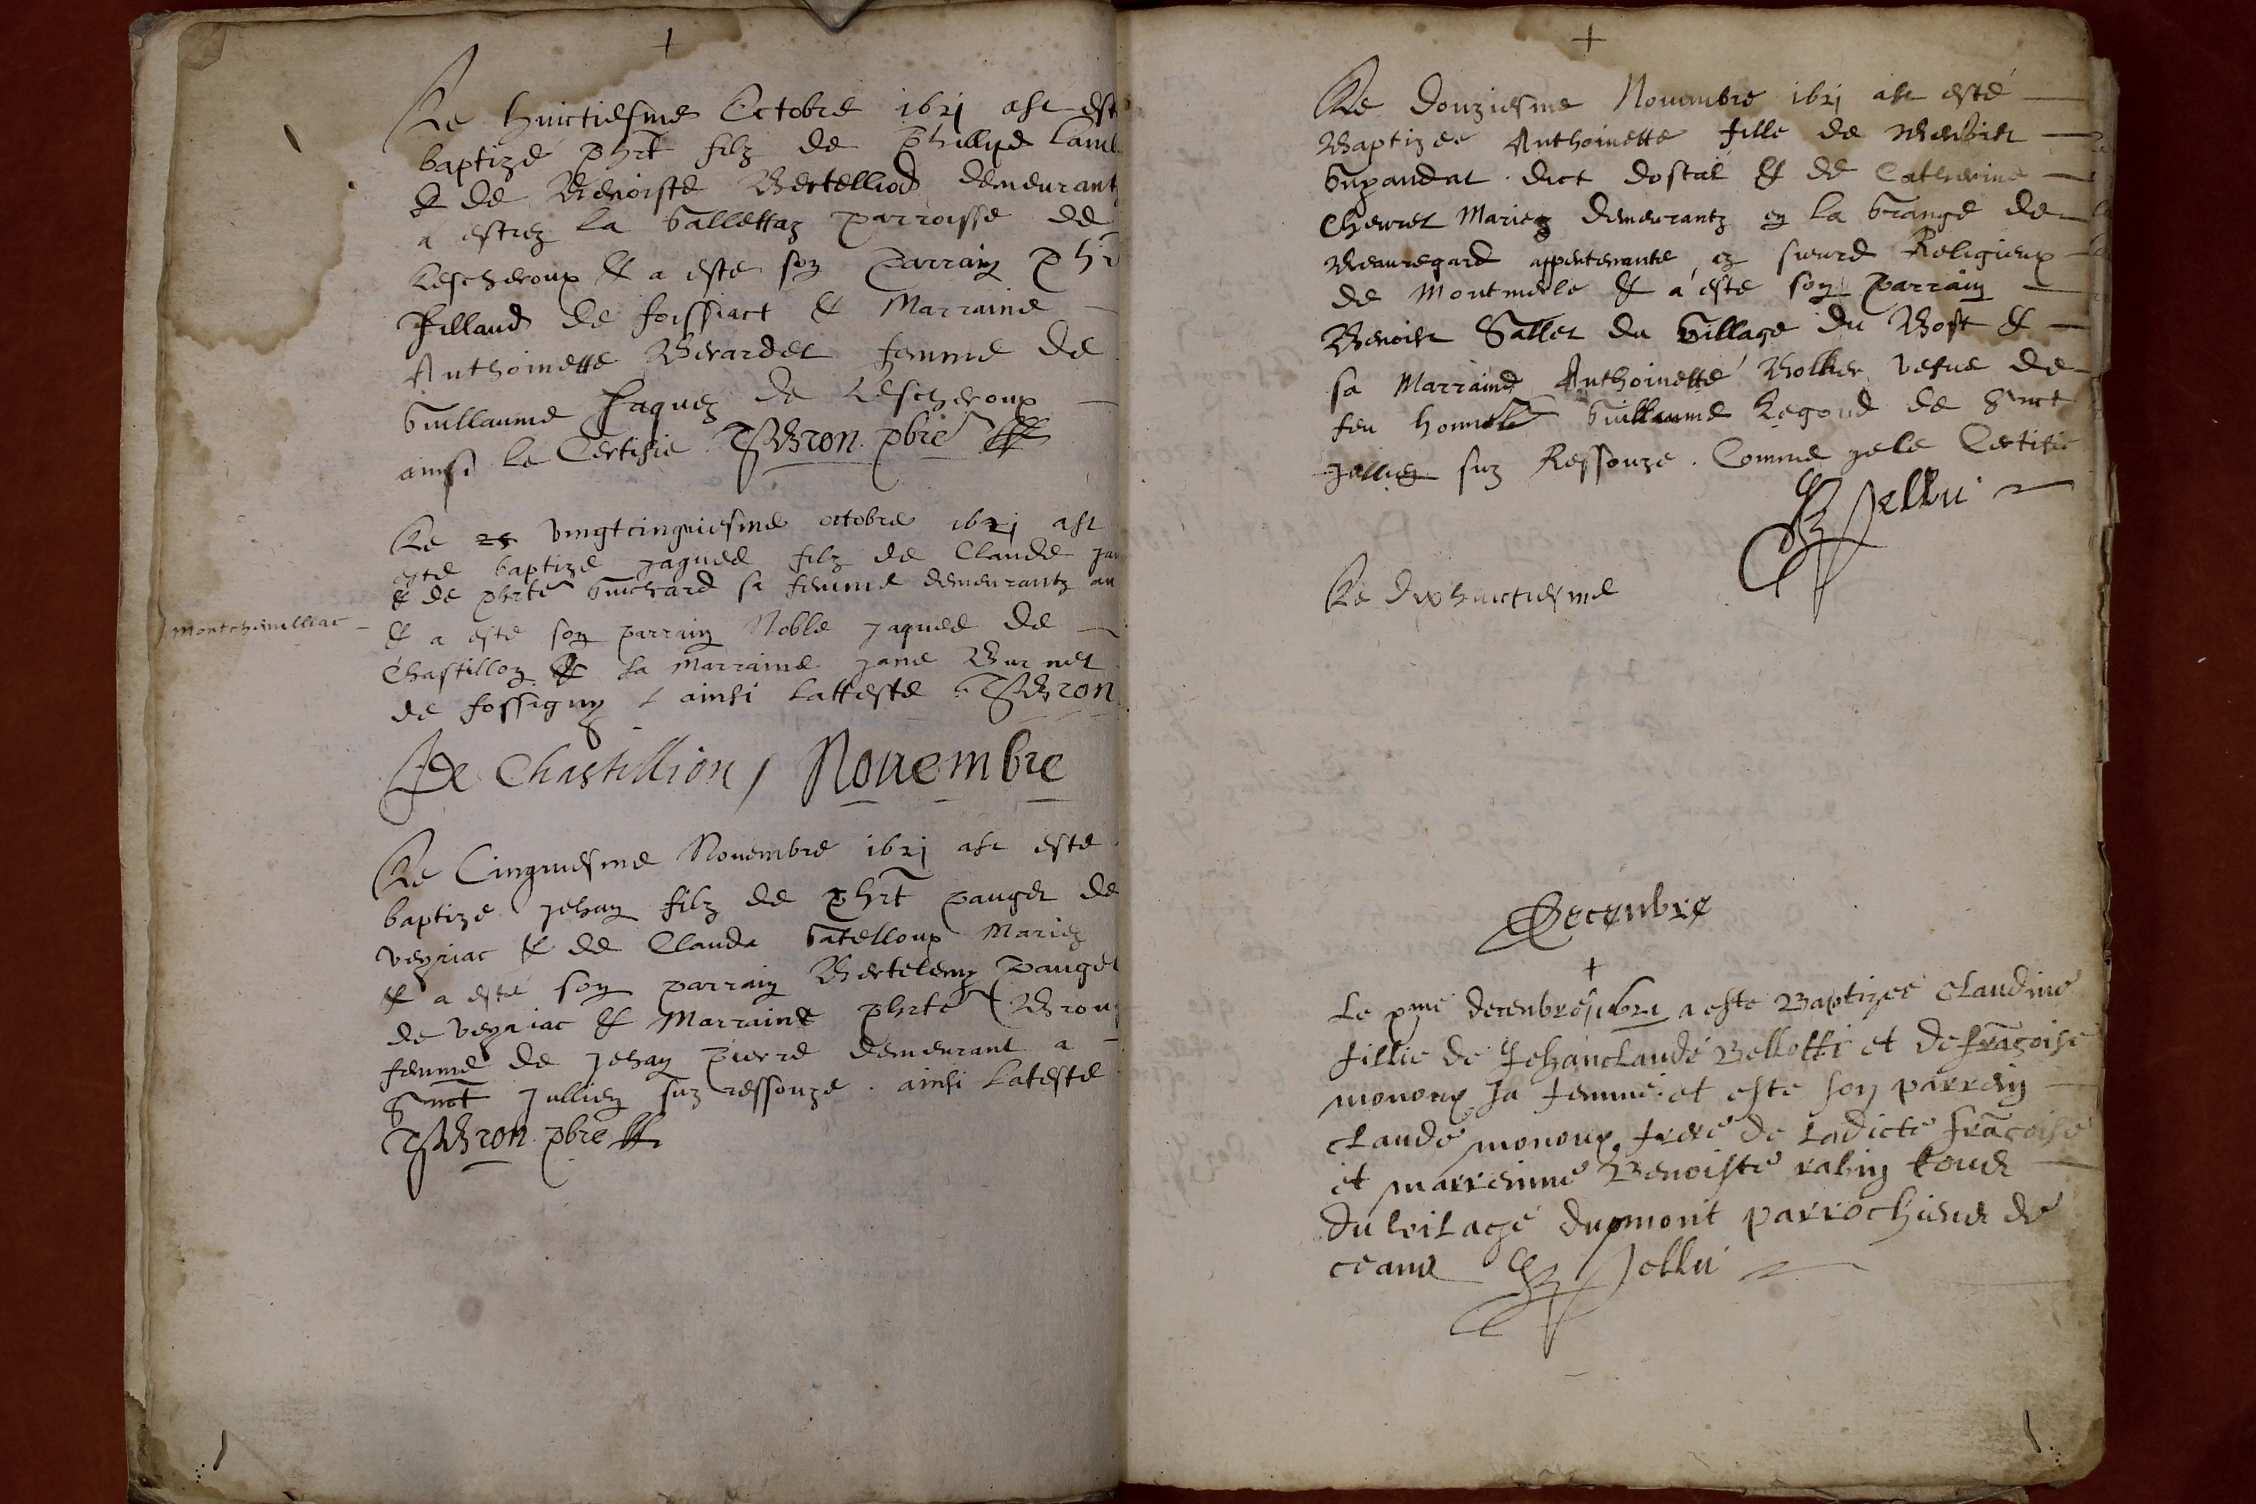 +
Le huictiesme Octobre 1621 aste est
baptizé phrt filz de Phillipe Lamb
& de Benoiste Bertelliod demeurant
a estrez la Vallettaz parroisse de
Lescheroux & a este son parrain phr
Fillaud de foissiact & Marraine
Anthoinette Berardet femme de
Guillaume Jaquez de Lescheroux
ainsi le Certifie Bron pbre
Le 25 vingtcinquiesme octobre 1621 ast
este baptize Jaques filz de Claude Jan
& de phrte Guichard sa femme demeurantz au
montchevilliac
& a este son parrain Noble Jaques de
Chastillon & la Marraine Jane Burnet
de fossigny ainsi latteste Bron
De Chastillion / Novembre
Le Cinquiesme Novembre 1621 ast este
baptize Jehan filz de phrt pauget de
veyriac & de Clauda Gatelloup Mariez
& a esté son parrain Bertelemy Pauget
de veyriac & Marraine phrte Bron
femme de Jehan pierre demeurant a
Sainct Jullien suz ressouze . ainsi lateste
Bron pbre
+
Le Douziesme Novembre 1621 ast esté
Baptizee Anthoinette fille de Benoist
dict dostal & de Catherine
Chevret Mariez demeurantz en la Grange de
Beauregard appertenante ez sieurs Religieux
de Montmerle & a este son parrain
Benoist Vallet du Village du Bost &
sa Marraine Anthoinette vefue de
feu honneste Guillaume Regoud de Sainct
Jullien suz Ressouze . Comme Je le Certifie
Jellu
Le Dixhuictiesme
Decembre
+
Le pme decenbre 1621 a este Baptizee Claudine
fillie de Jehan claude Bellotti et de frãcoise
monoux sa femme et este son parrein
claude monoux frere de ladicte frãcoise
et marreinne Benoiste rabin tous
du vilage dupmont parrochiens de
ceans Jellu